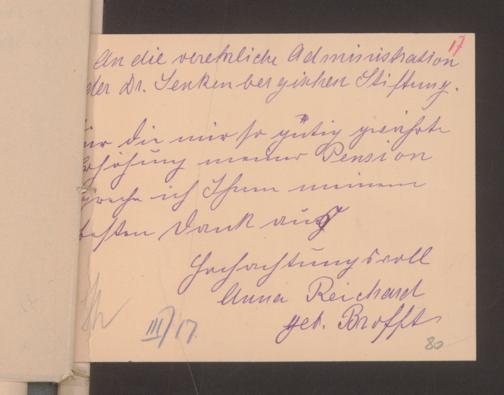 17
An die verehrliche Administration
der Dr. Senkenbergischen Stiftung.
für die mir so gütig gewährte
Erhöhung meiner Pension
spreche ich Ihnen meinen
besten Dank aus
Hochachtungsvoll
Anna Reichard
geb. Brofft
III/17.
80